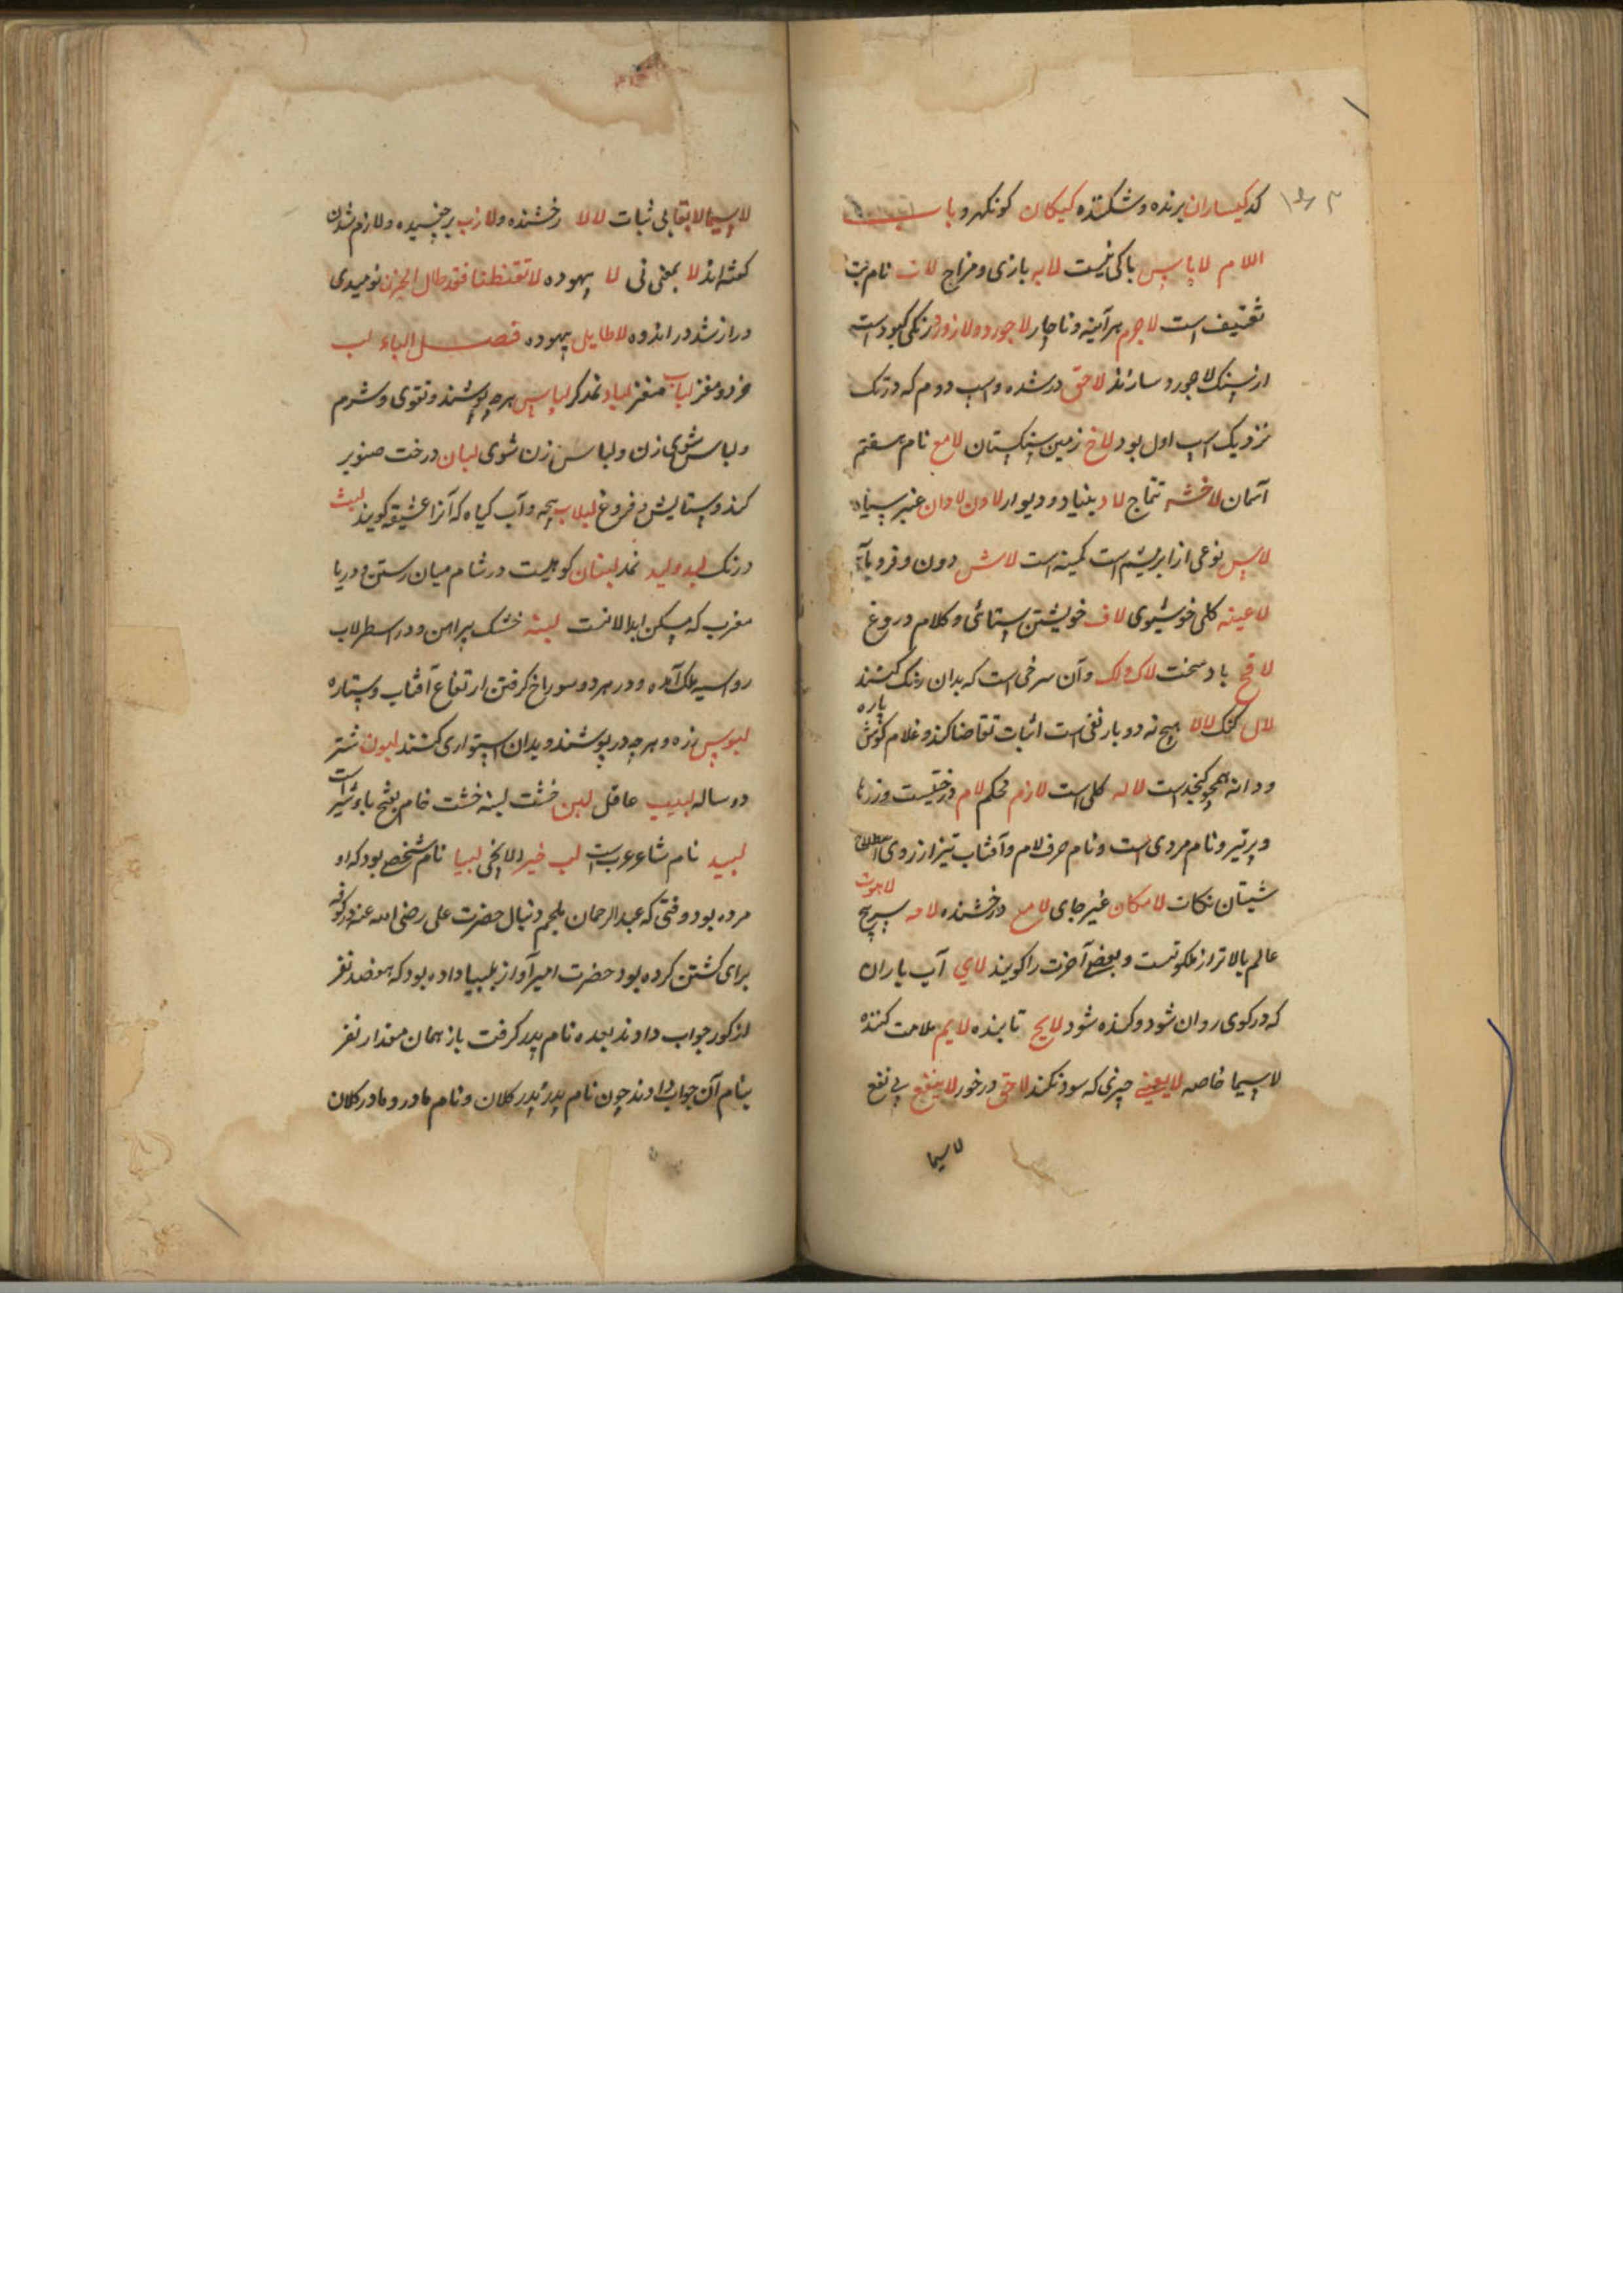 کد کیساران برنده و شکننده کیکان کونکهرو باب
اللام لاباس باکی نیست لابه بازی و مزاح لات نام بت
ثقیف است لاجرم هر آینه و ناچار لاجورد و لازورد رنکی کبود است
از سنک لاجورد سازند لاحق در شده و اسب دوم که در تک
نزدیک اسب اول بود لاخ زمین سنکستان لامع نام هفتم
آسمان لاخشه تتماج لاد بنیاد و دیوار لادن لادان عنبر سیاه
لاس نوعی از ابریشم است کمینه است لاش دون و فرومایه
لاعیه کلی خوشبوی لاف خویشتن ستائی و کلام دروغ
لاقح باد سخت لاک و لک و آن سرخی است که بدان رنک کنند
لال کنک لالا هیچ نه دو بار نفی است اثبات تقاضا کند و غلام کوش پاره
و دانه همچو کنجد است لاله کلی است لازم محکم لام درختیست و زرها
و پر تیر و نام مردی است و نام حرف لام و آفتاب تیز از روی
شیتان نکات لامکان غیر جای لامع درخشنده لامه سرپیچ لاهوت
عالم بالاتر از ملکوتست و بعضی آخرت را کویند لای آب باران
که در کوی روان شود و کنده شود لایح تابنده لایم ملامت کننده
لاسیما خاصه لایعنی چیزی که سود نکند لاحق درخور لاینفع بی نفع
لاسیما
لاسیما لابقا بی ثبات لالا رخشنده و لازب برچفسیده و لازم شدن
کفته اند لا بمعنی نی لا بیهوده لا تقنطنا فقد طال الحزن نومیدی
دراز شد در اندوه لاطایل بیهوده فصل الباء لب
خرد و مغز لباب مغز لباد نمدکر لباس هر چه پوشند و تقوی و شرم
و لباس شوی زن و لباس زن شوی لبان درخت صنوبر
کند و ستایش بی فروغ لبلاب بیچه و آب کیاه که آنرا عشیق کویند لبث
درنک لبد و لبد نمد لبنان کوهیست در شام میان رستن و دریا
مغرب که مسکن ابدالانست لبنه خشتک پیراهن و در اسطرلاب
و در هر دو سوراخ کرفتن ارتفاع آفتاب و ستاره
لبوس زه و هر چه در پوشند و بدان استواری کنند لبون شتر
دو ساله لبیب عاقل لبن خشت لبنه خشت خام بفتح باء شیر است
لبید نام شاعر عربست لب خیر لبیا نام شخص بود که او
مرده بود وقتی که عبدالرحمان ملجم دنبال حضرت علی رضی الله عنه در کوفه
برای کشتن کرده بود حضرت امیر آواز بلبیا داده بود که هفصد نفر
از کور جواب دادند بعده نام پدر کرفت باز همان مقدار نفر
بنام آن جواب دادند چون نام پدر پدر کلان و نام مادر و مادر کلان